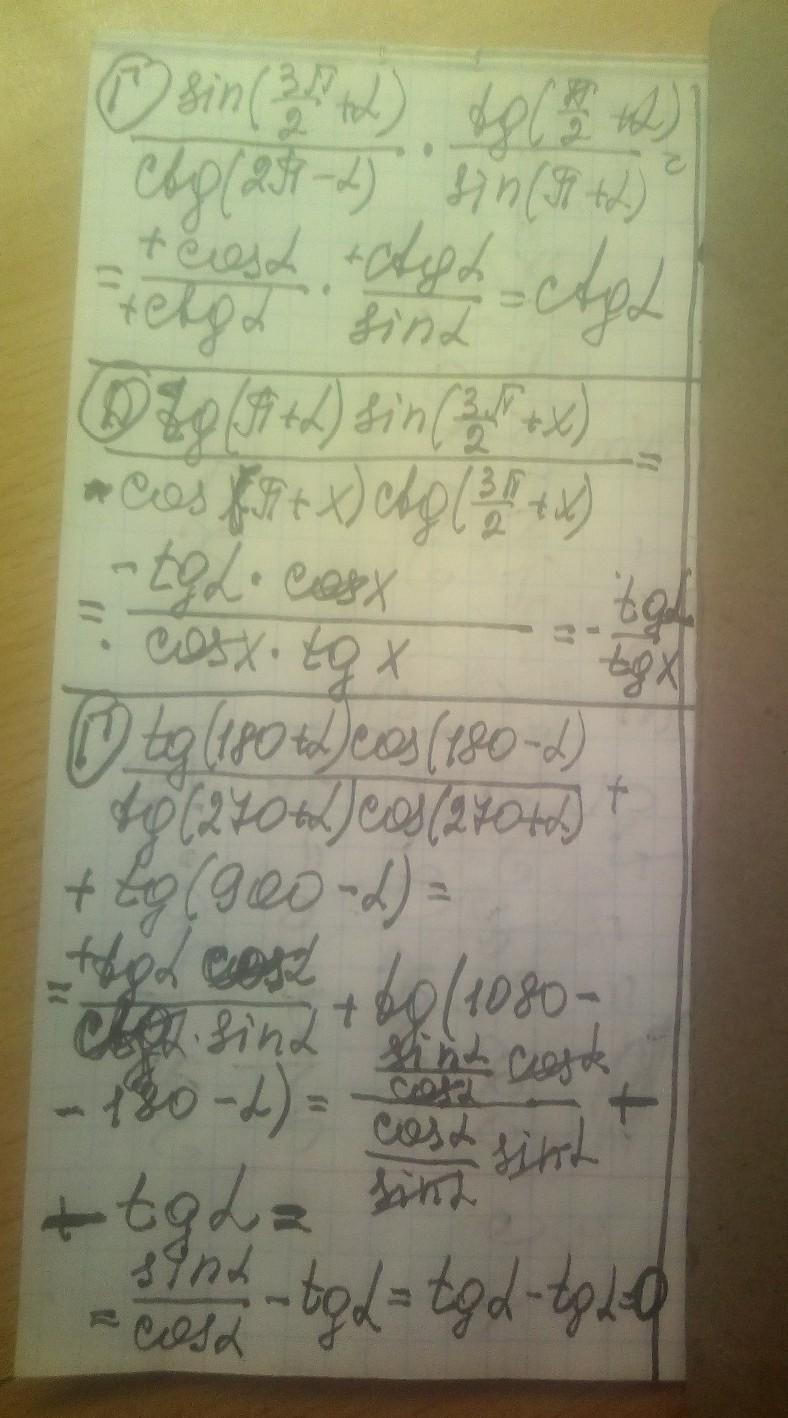 Г) sin(3π/2 + α) / ctg(2π − α) · tg(π/2 + α) / sin(π + α) =
= + cosα / + ctgα · + ctgα / sinα = ctgα
tg(π + α) sin(3π/2 + x) / cos(π + x) ctg(3π/2 + x) =
= - tgα · cosx / cosx · tg x = - tgα / tg x
Г) tg(180 + α) cos(180 − α) / tg(270 + α) cos(270 + α) +
+ tg(900 − α) =
= + tgα cosα / ctgα · sinα + tg(1080 −
− 180 − α) = sinα/cosα cosα / cosα/sinα sinα +
+ − tgα =
= sinα / cosα − tgα = tgα − tgα = 0